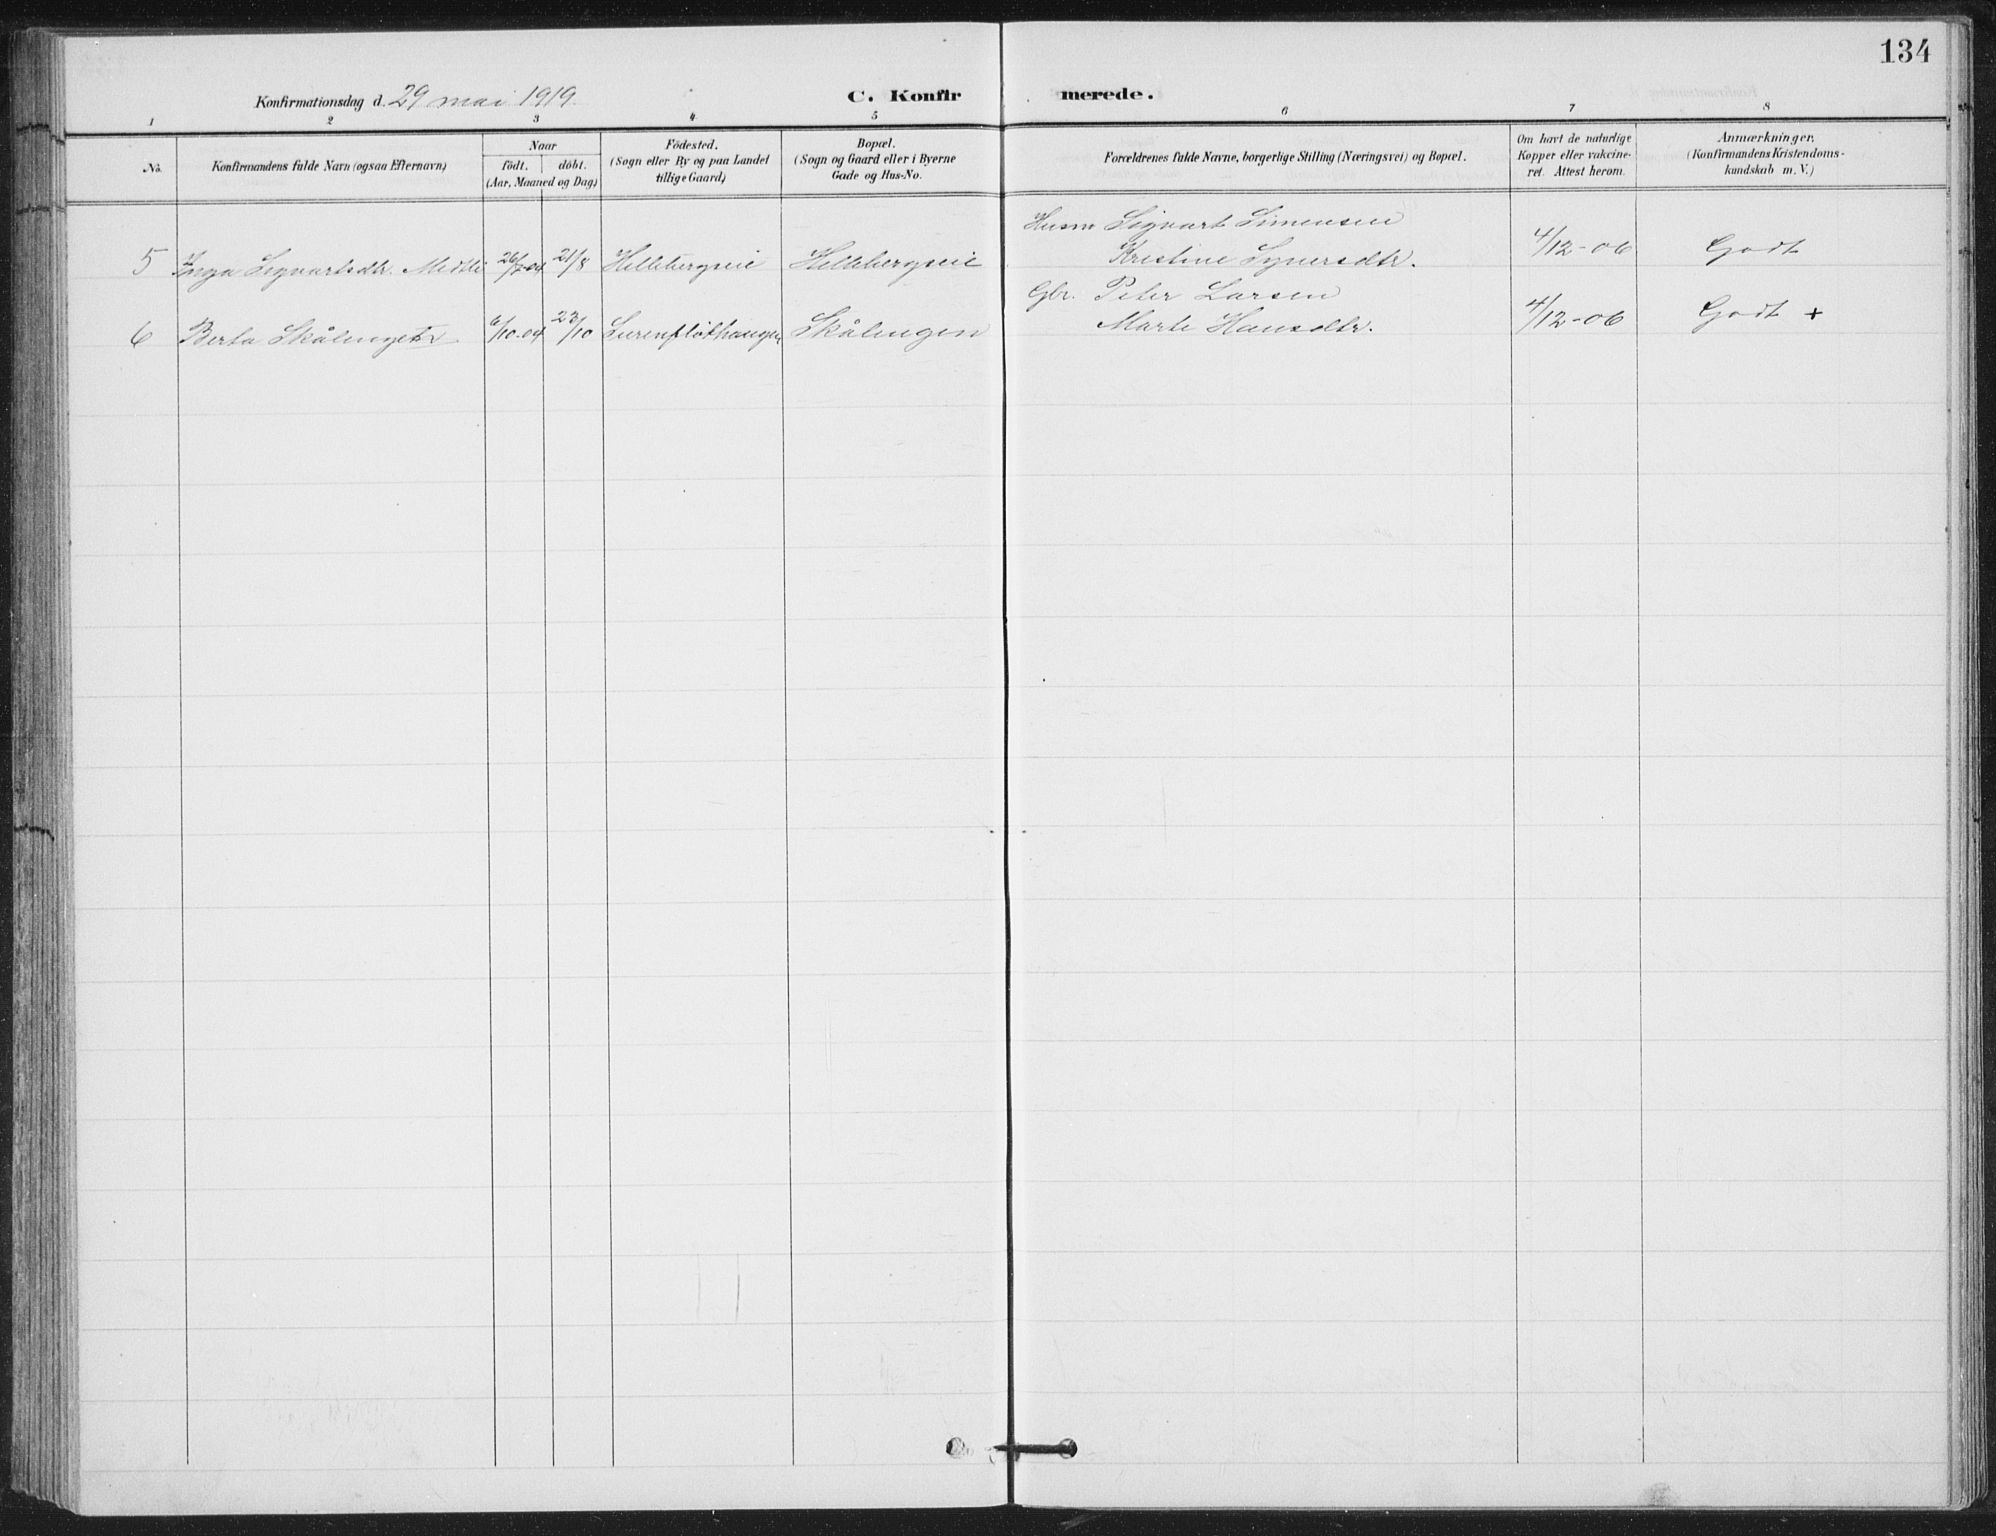 134
Konfirmationsdag d. 29 mai 1919.
C. Konfir merede.
1 2 3 4 5 6 7 8
No.
Konfirmandens fulde Navn (ogsaa Efternavn)
Naar
födt. döbt.
(Aar, Maaned og Dag)
Födested.
(Sogn eller By og paa Landet
tillige Gaard)
Bopæl.
(Sogn og Gaard eller i Byerne
Gade og Hus-No.
Forældrenes fulde Navne, borgerlige Stilling (Næringsvei) og Bopæl.
Om havt de naturlige
Kopper eller vakcine-
ret. Attest herom.
Anmærkninger.
(Konfirmandens Kristendoms-
kundskab m. V.)
Husm Sigvart Simensen
5 Inga Sigvartsdtr. Medtli 26/7-04 21/8 Hellebergseie Hellebergseie Kristine Syversdtr. 4/12-06 Godt
Gbr. Peter Larsen
6 Berta Skålenget 6/10.04 23/10 Skålengen Marte Hansdtr. 4/12-06 Godt +